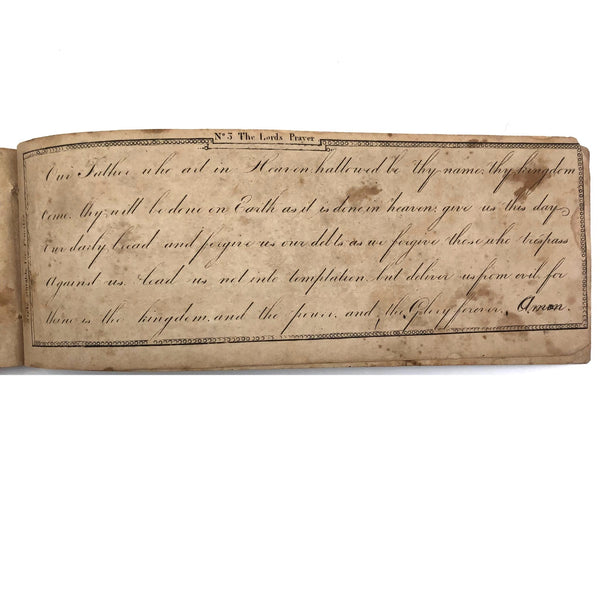 No 3 The Lords Prayer
Our Father who art in Heaven hallowed be thy name; thy kingdom
come. thy will be done on Earth as it is done in heaven; give us this day
Our daily bread and forgive us our debts as we forgive those who trespass
Against us. Lead us not into temptation. but deliver us from evil. for
thine is the kingdom. and the power. and the Glory forever. Amen.